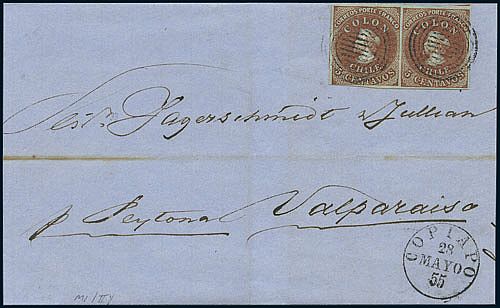 CORREOS PORTE FRANCO CORREOS PORTE FRANCO
COLON COLON
CHILE CHILE
5 CENTAVOS 5 CENTAVOS
Jagerschmidt & Jullian
p. Peytona Valparaiso
COPIAPO
28
MAYO
55